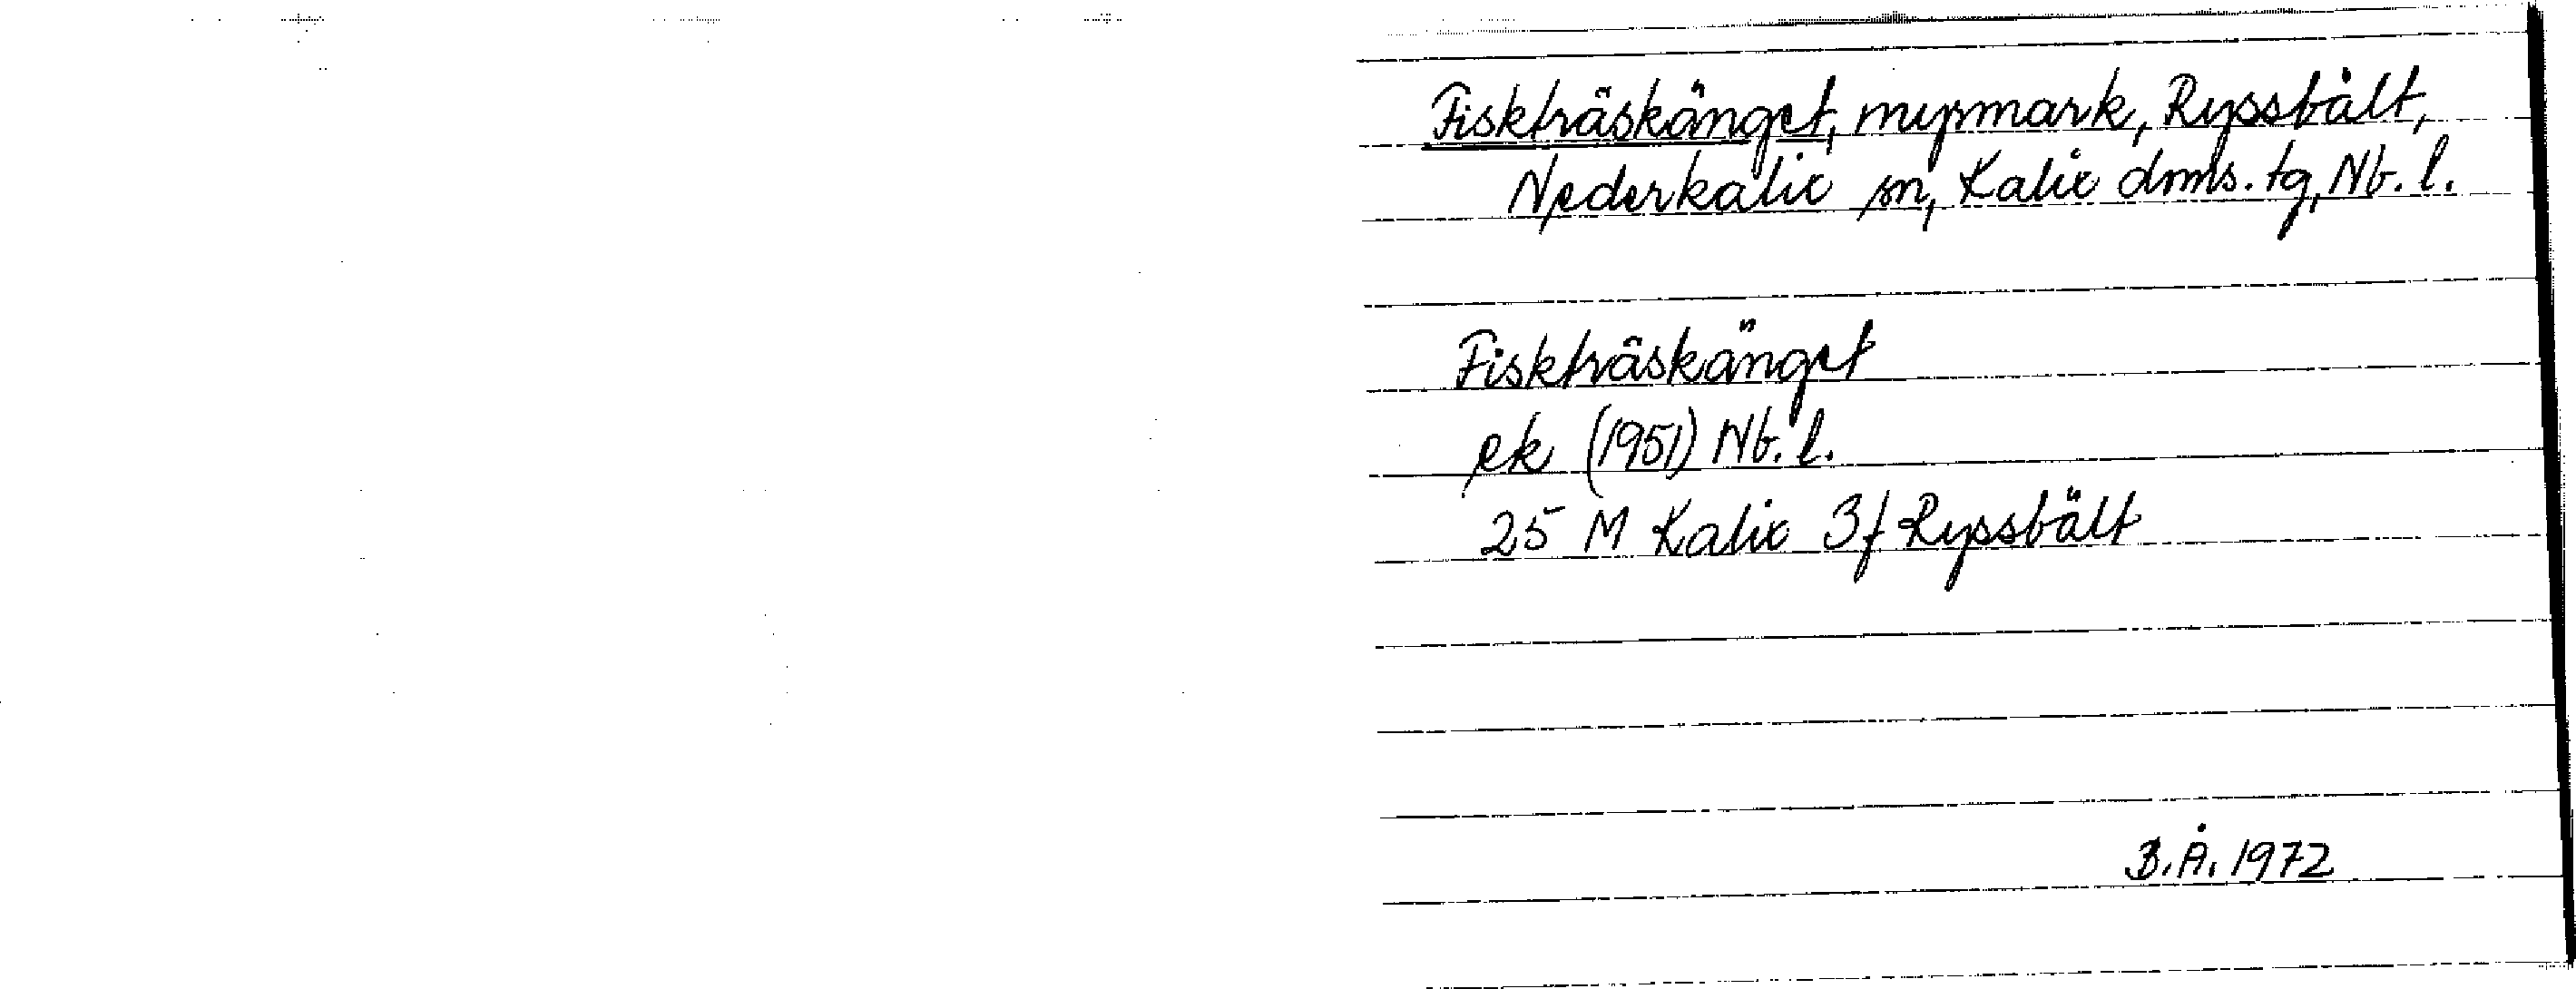 Fiskträskänget, myrmark, Ryssbält,
Nederkalix sn, Kalix dmls. tg, Nb. l.
Fiskträskänget
ek (1951) Nb. l.
25 M Kalix 3f Ryssbält
B.Å. 1972